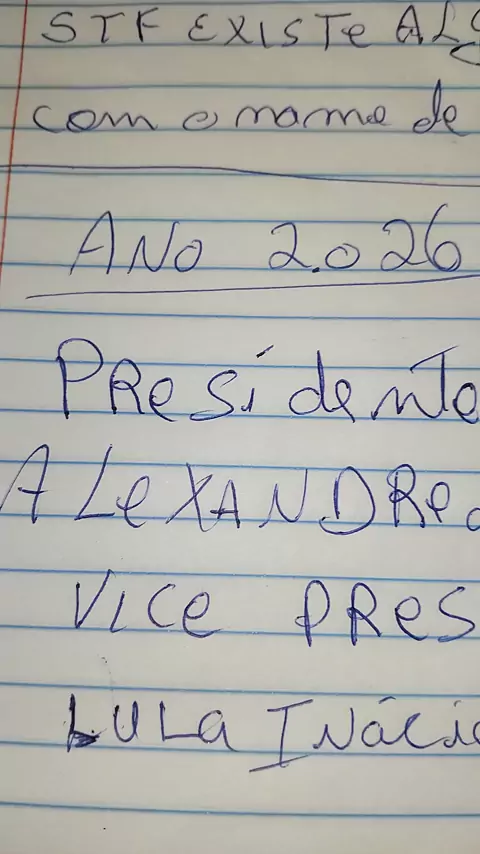 STF EXISTE ALG
com o nome de
ANO 2.026
PResidente
ALeXANDRe d
VICe PRes
LULa INácio